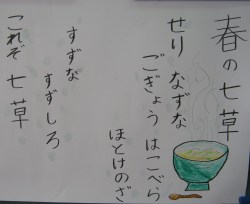 春の七草
せり なずな
ごぎょう はこべら
ほとけのざ
すずな
すずしろ
これぞ 七草